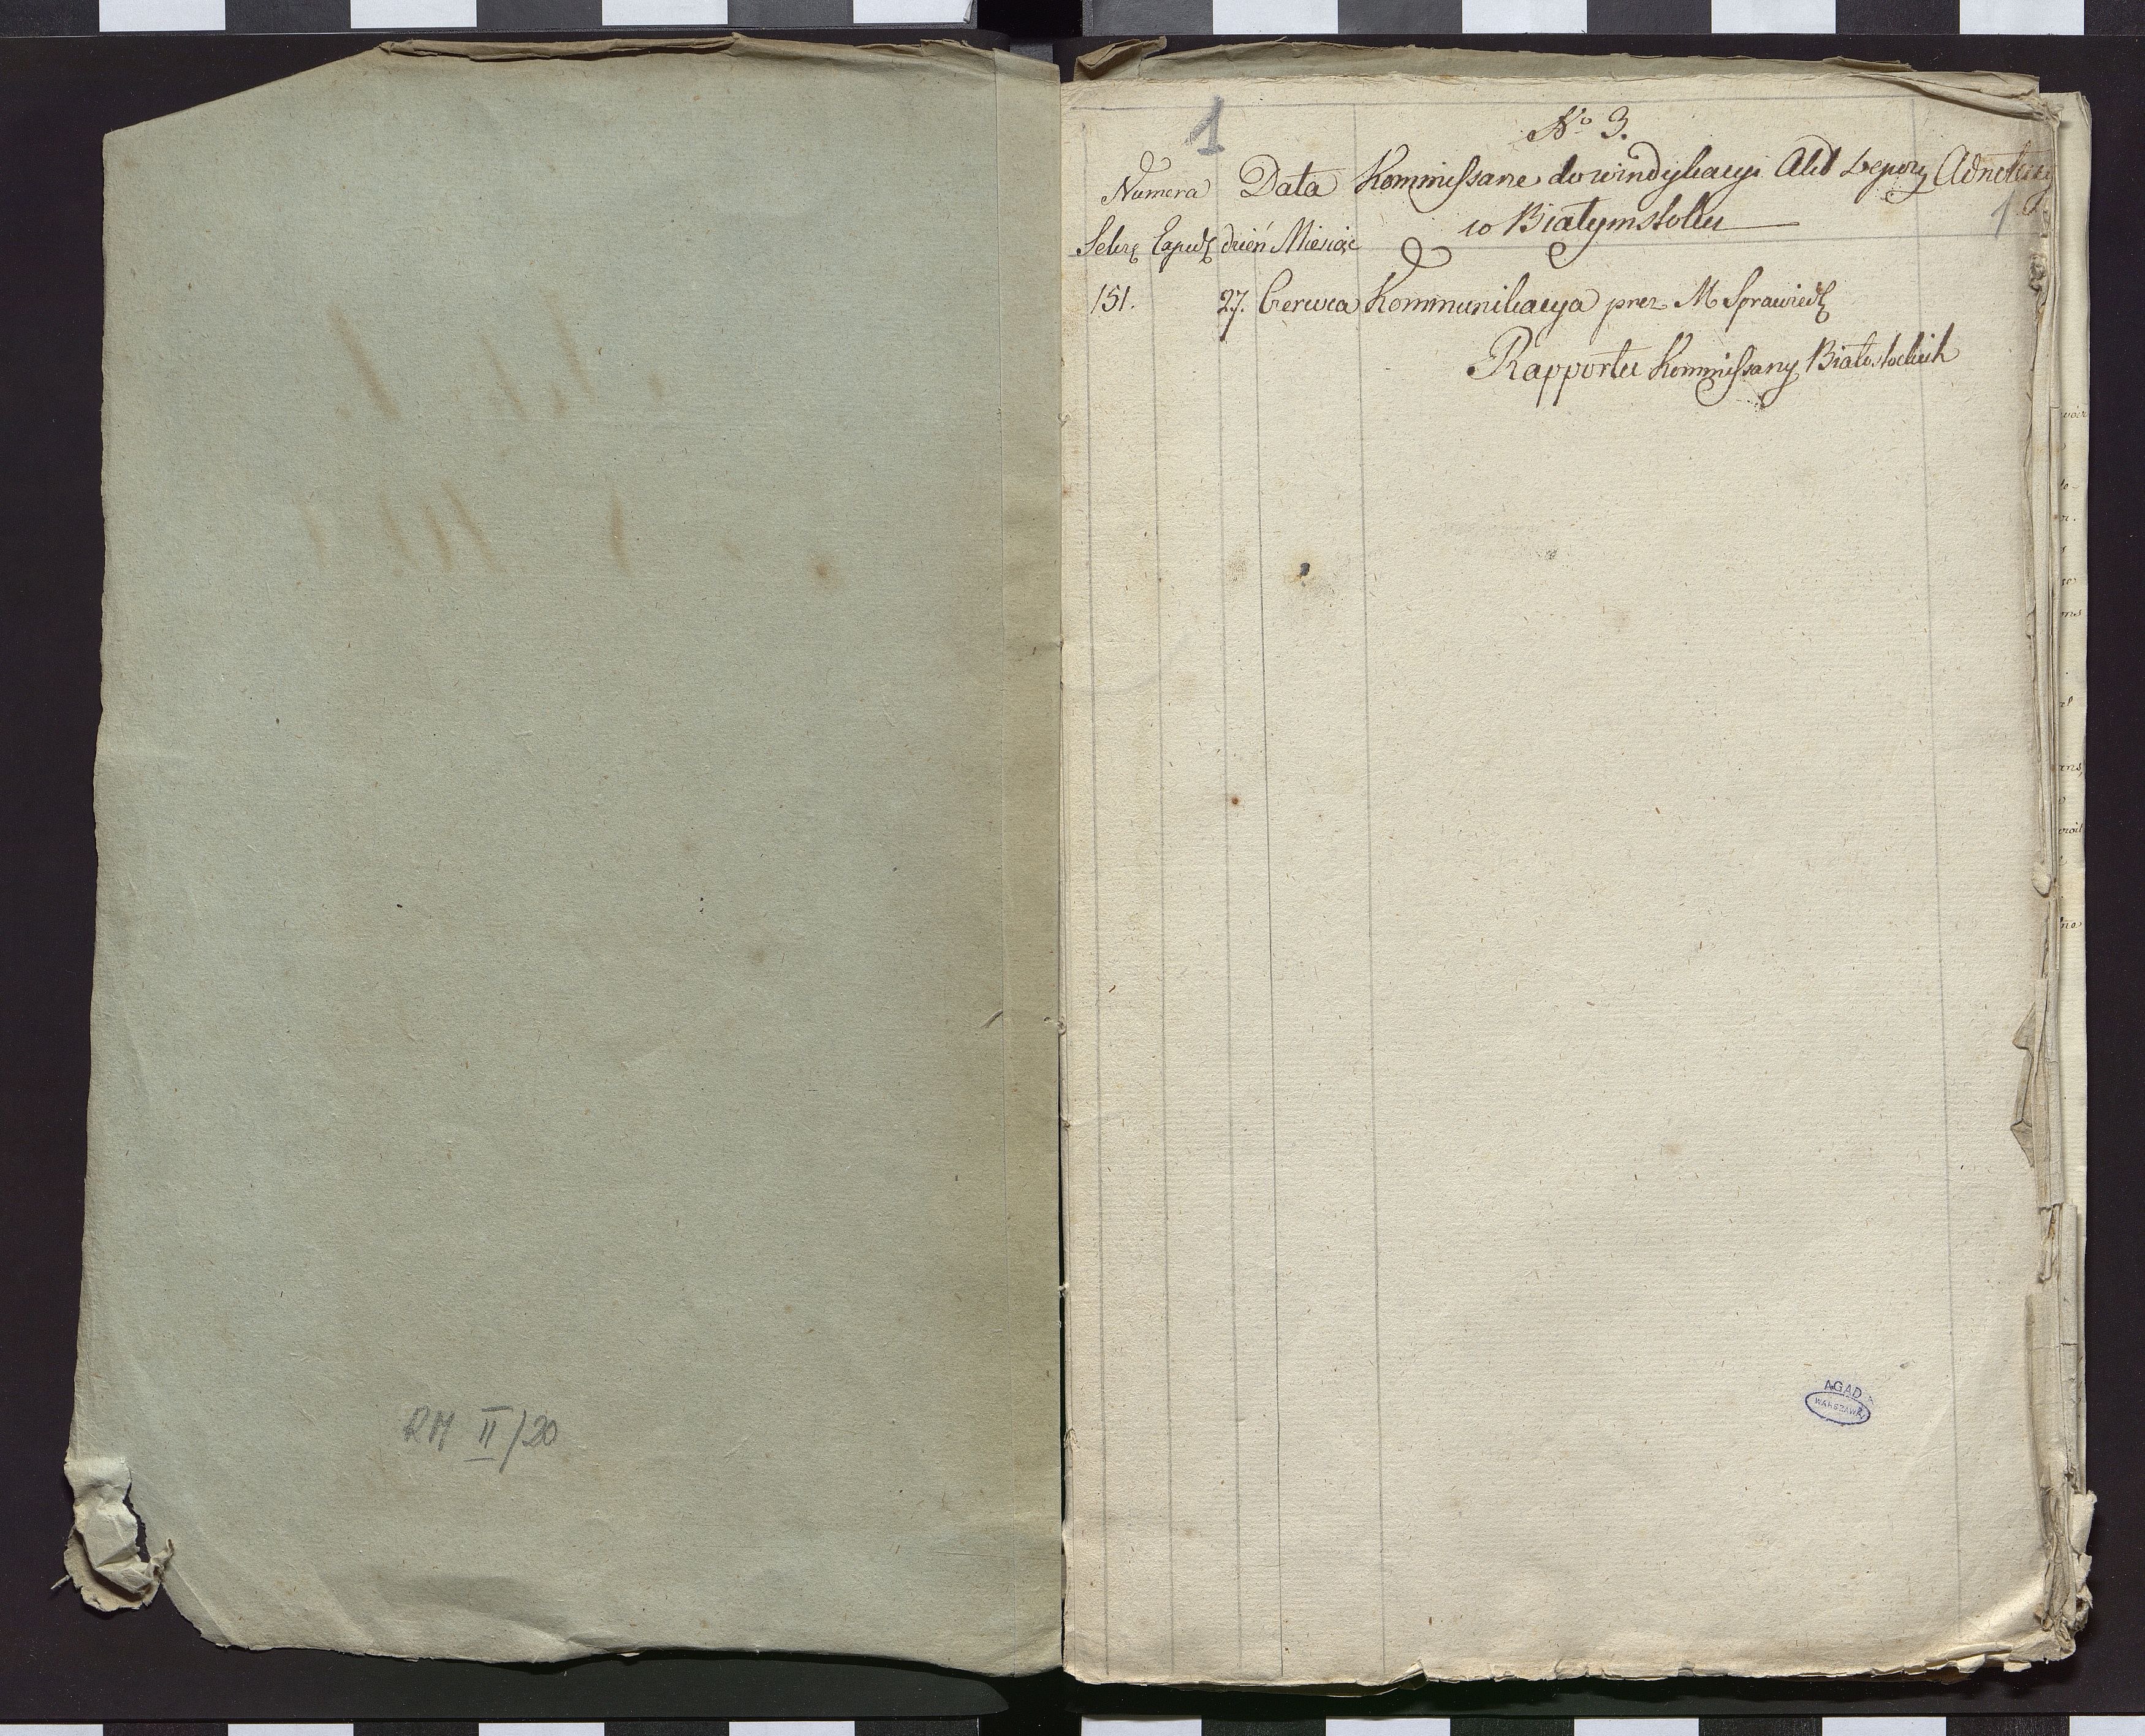 RM II/20
1
No 3.
Numera Data Kommissarze do windykacyi Akt Adnotacye
w Białymstoku
1
Sekr Exped dzień Miesiąc
151. 27. Czerwca Kommunikacya przez M Sprawiedl
Rapportu Kommissarzy Białostockich
AGAD
WARSZAWA